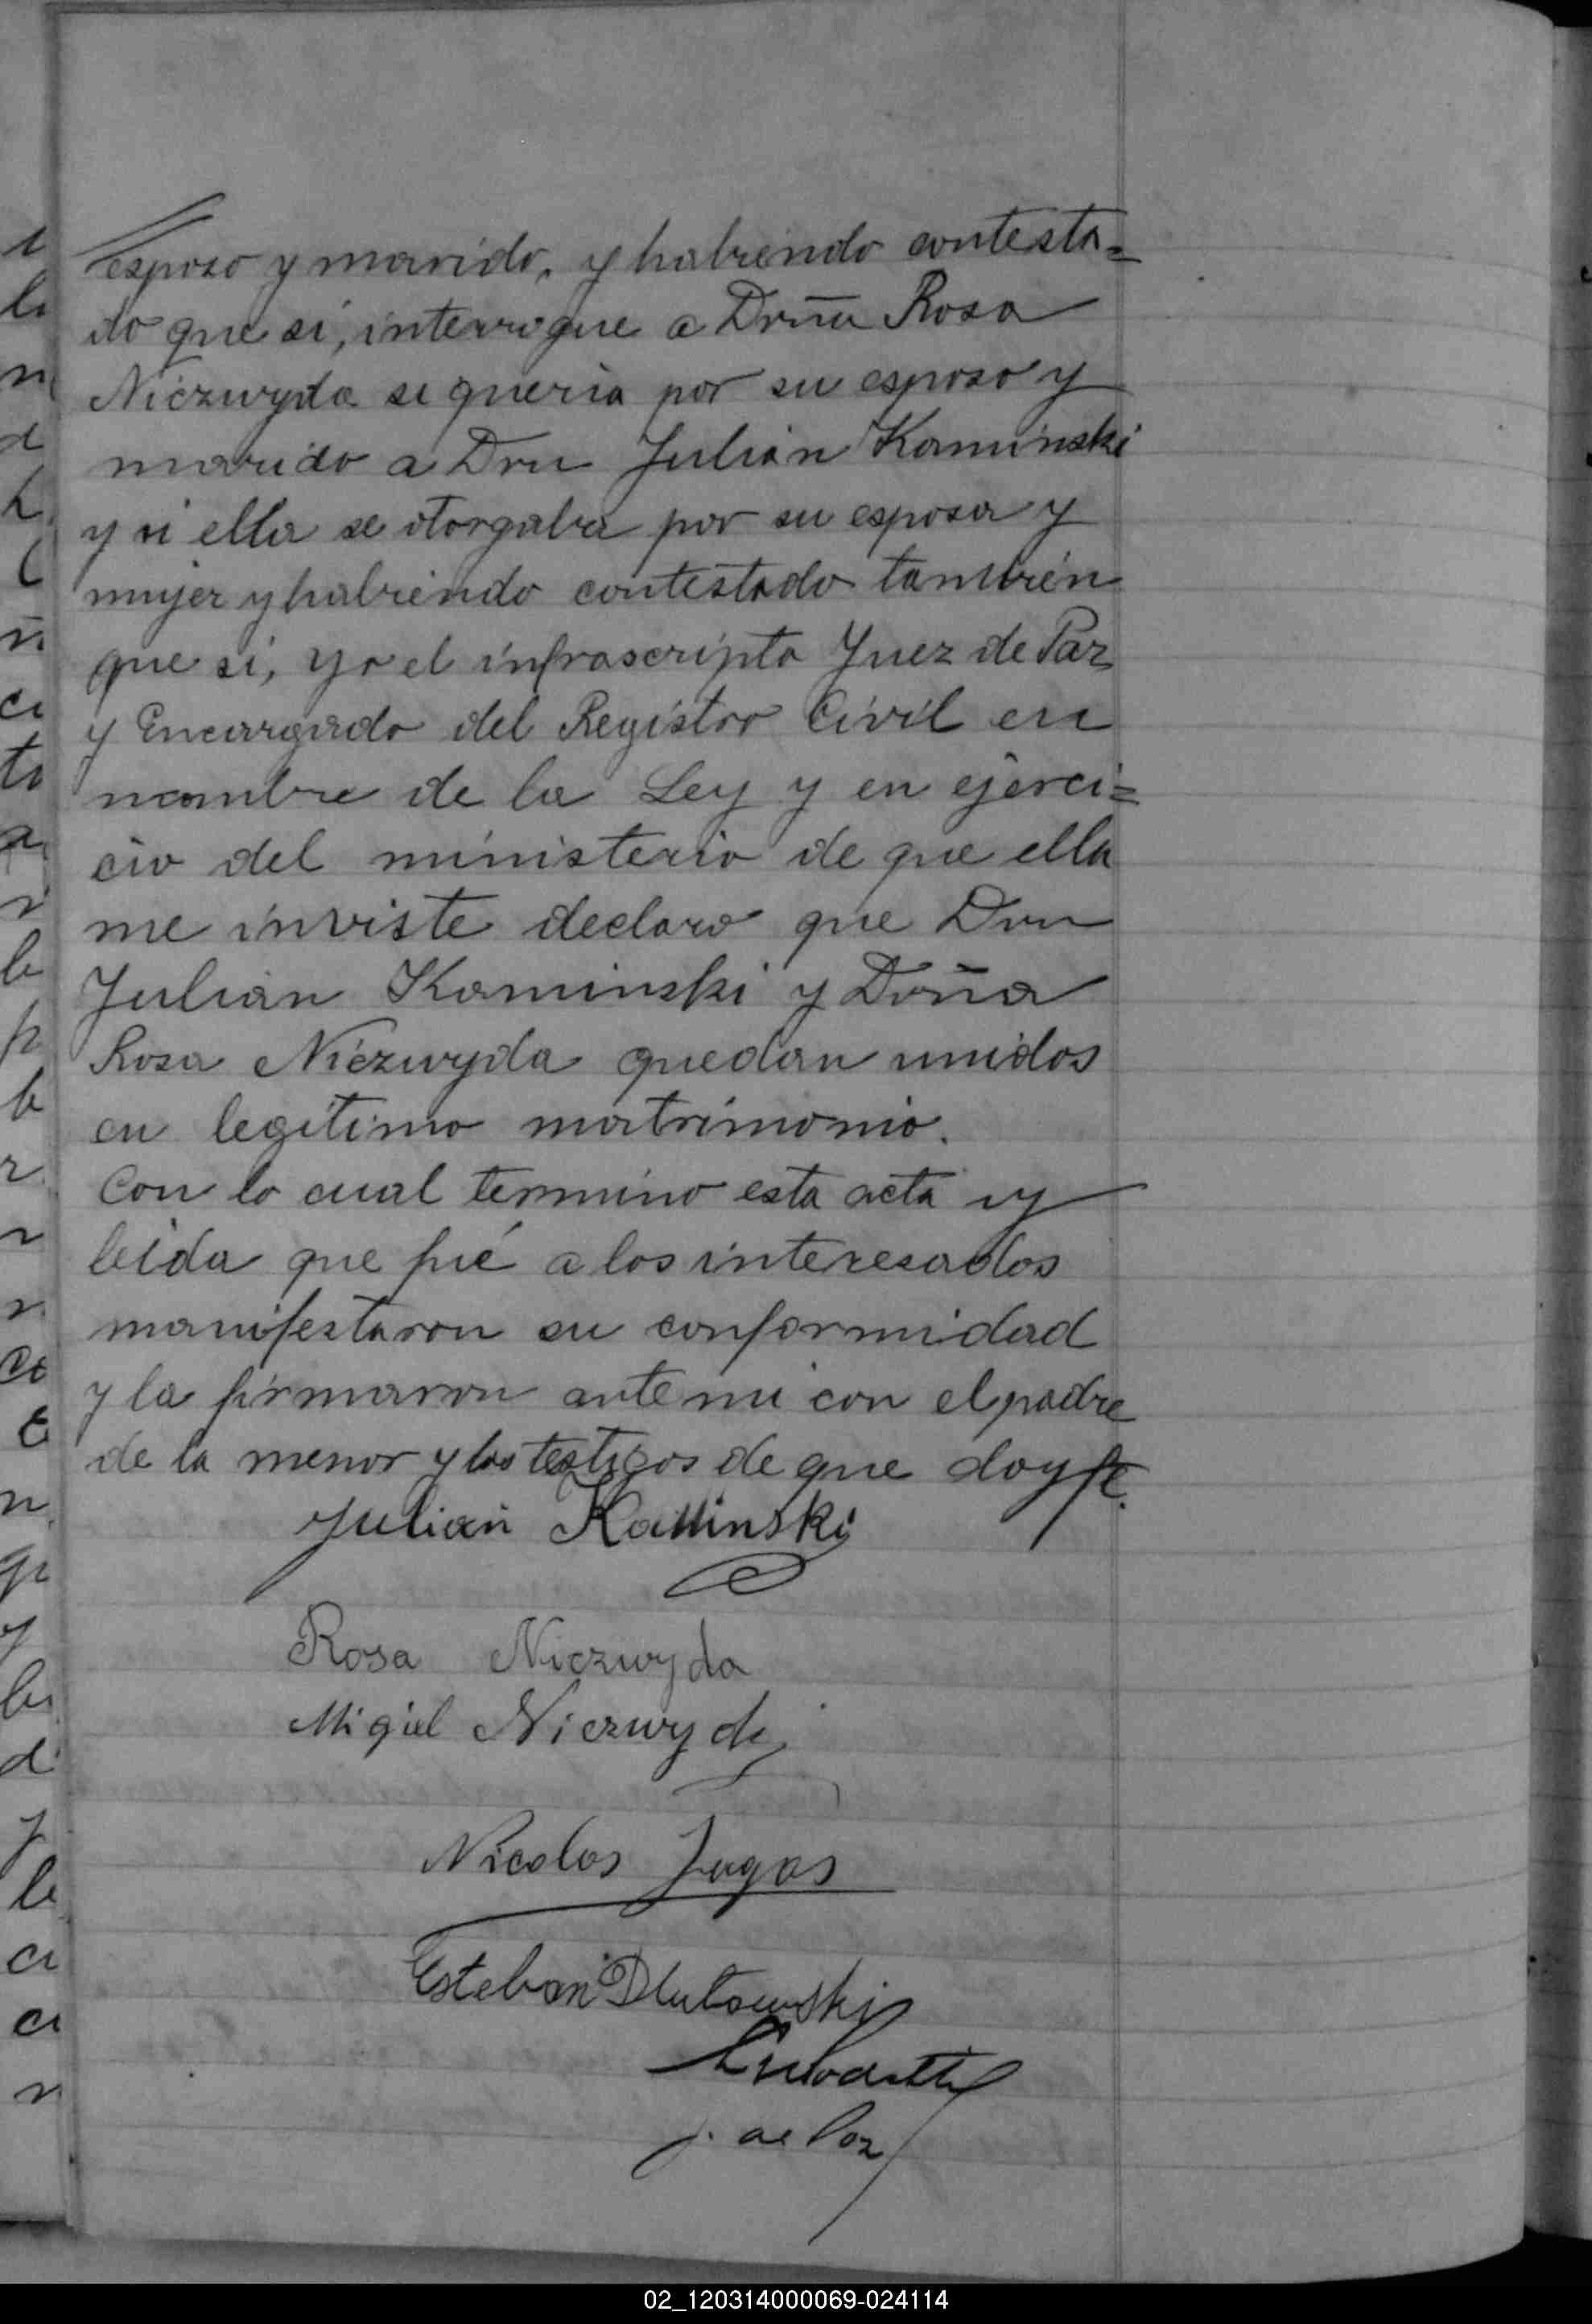 esposo y marido, y habiendo contesta=
do que si, interrogue a Doña Rosa
Niezwyda si queria por su esposo y
marido a Don Julian Kaminski
y si ella se otorgaba por su esposa y
mujer y habiendo contestado tambien
que si, yo el infrascripto Juez de Paz
y Encargado del Registro Civil en
nombre de la Ley y en ejerci=
cio del ministerio de que ella
me inviste declaro que Don
Julian Kaminski y Doña
Rosa Niezwyda quedan unidos
en legitimo matrimonio.
Con lo cual termino esta acta y
leida que fué a los interesados
manifestaron su conformidad
y la firmaron ante mi con el padre
de la menor y los testigos de que doy fe.
Julian Kaminski
Rosa Niezwyda
Migiel Niezwydy
Nicolas Jugas
Esteban Dlutowski
J. de Paz
02_120314000069-024114